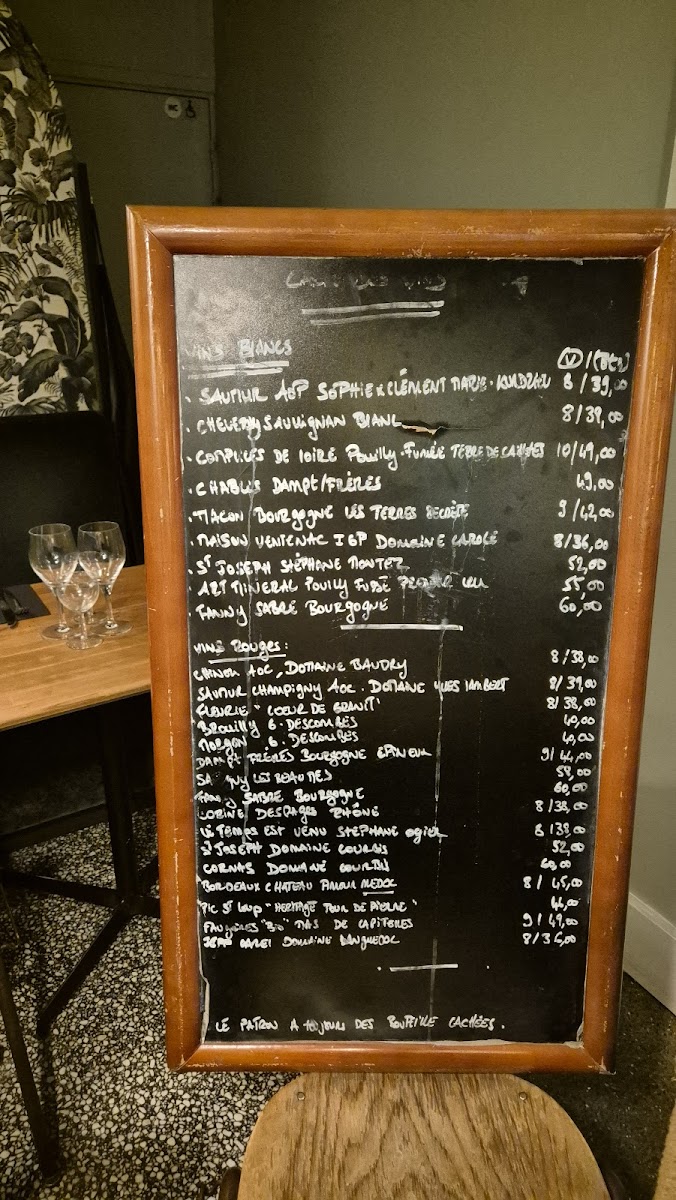 VINS BLANCS (V) / (BTV)
. SAUMUR AOP SOPHIE & CLÉMENT MARIE. 8 / 39,00
. CHEVERNY SAUVIGNAN BLANC 8/39,00
. COMPLICES DE LOIRE POUILLY-FUMÉE TERRE DE CAILLOTTES 10/49,00
. CHABLIS DAMPT/FRÈRES 49,00
. MACON BOURGOGNE LES TERRES SECRÈTE 9 / 42,00
. MAISON VENTENAC IGP DOMAINE CAROLE 8/36,00
. ST JOSEPH STÉPHANE MONTEZ 52,00
. ART MINERAL POUILLY FUSSÉ PREMIER CRU 55,00
FANNY SABRE BOURGOGNE 60,00
VINS ROUGES :
CHINON AOC, DOMAINE BAUDRY 8/38,00
SAUMUR CHAMPIGNY AOC. DOMAINE YVES LAMBERT 8/39,00
FLEURIE "COEUR DE GRANIT" 8/38,00
BROUILLY G. DESCOMBES 40,00
MORGON G. DESCOMBES 40,00
DAMPT FRÈRES BOURGOGNE EPINEUIL 9/44,00
SA NY LES BEAUMES 58,00
FANNY SABRE BOURGOGNE 60,00
LORINE DESPAGES RHÔNE 8/38,00
LE TEMPS EST VENU STEPHANE OGIER 8/38,00
ST JOSEPH DOMAINE COURBIS 52,00
CORNAS DOMAINE COURBIS 60,00
BORDEAUX CHATEAU MEDOC 8/ 45,00
PIC ST LOUP "HERITAGE TOUR DE PIERRE" 44,00
FAUGÈRES "BIO" MAS DE CAPITELLES 9/49,00
DOMAINE LANGUEDOC 8/36,00
LE PATRON A TOUJOURS DES BOUTEILLE CACHÉES.